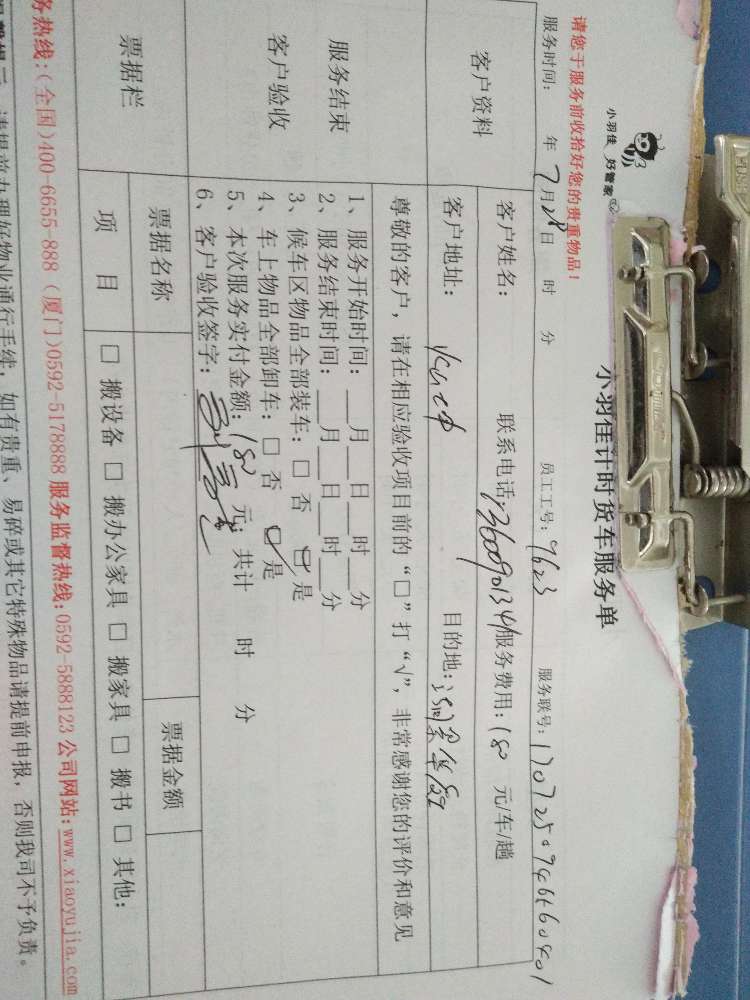 小羽佳 好管家
小羽佳计时货车服务单
请您于服务前收拾好您的贵重物品!
服务时间: 年 7月28日 时 分 员工工号: 9623 服务联号:
客户资料
客户姓名: 联系电话: 服务费用: 180 元/车/趟
客户地址: 目的地:
服务结束
客户验收
尊敬的客户,请在相应验收项目前的“□”打“√”,非常感谢您的评价和意见
1、服务开始时间:__月__日__时__分
2、服务结束时间:__月__日__时__分
3、候车区物品全部装车:□ 否 ☑ 是
4、车上物品全部卸车:□ 否 ☑ 是
5、本次服务实付金额: 180 元;共计 时 分
6、客户验收签字:
票据栏
票据名称 票据金额
项 目 □ 搬设备 □ 搬办公家具 □ 搬家具 □ 搬书 □ 其他:
务热线:(全国)400-6655-888 (厦门)0592-5178888 服务监督热线:0592-5888123 公司网站:www.xiaoyujia.com
请提前办理好物业通行手续,如有贵重、易碎或其它特殊物品请提前申报,否则我司不予负责。